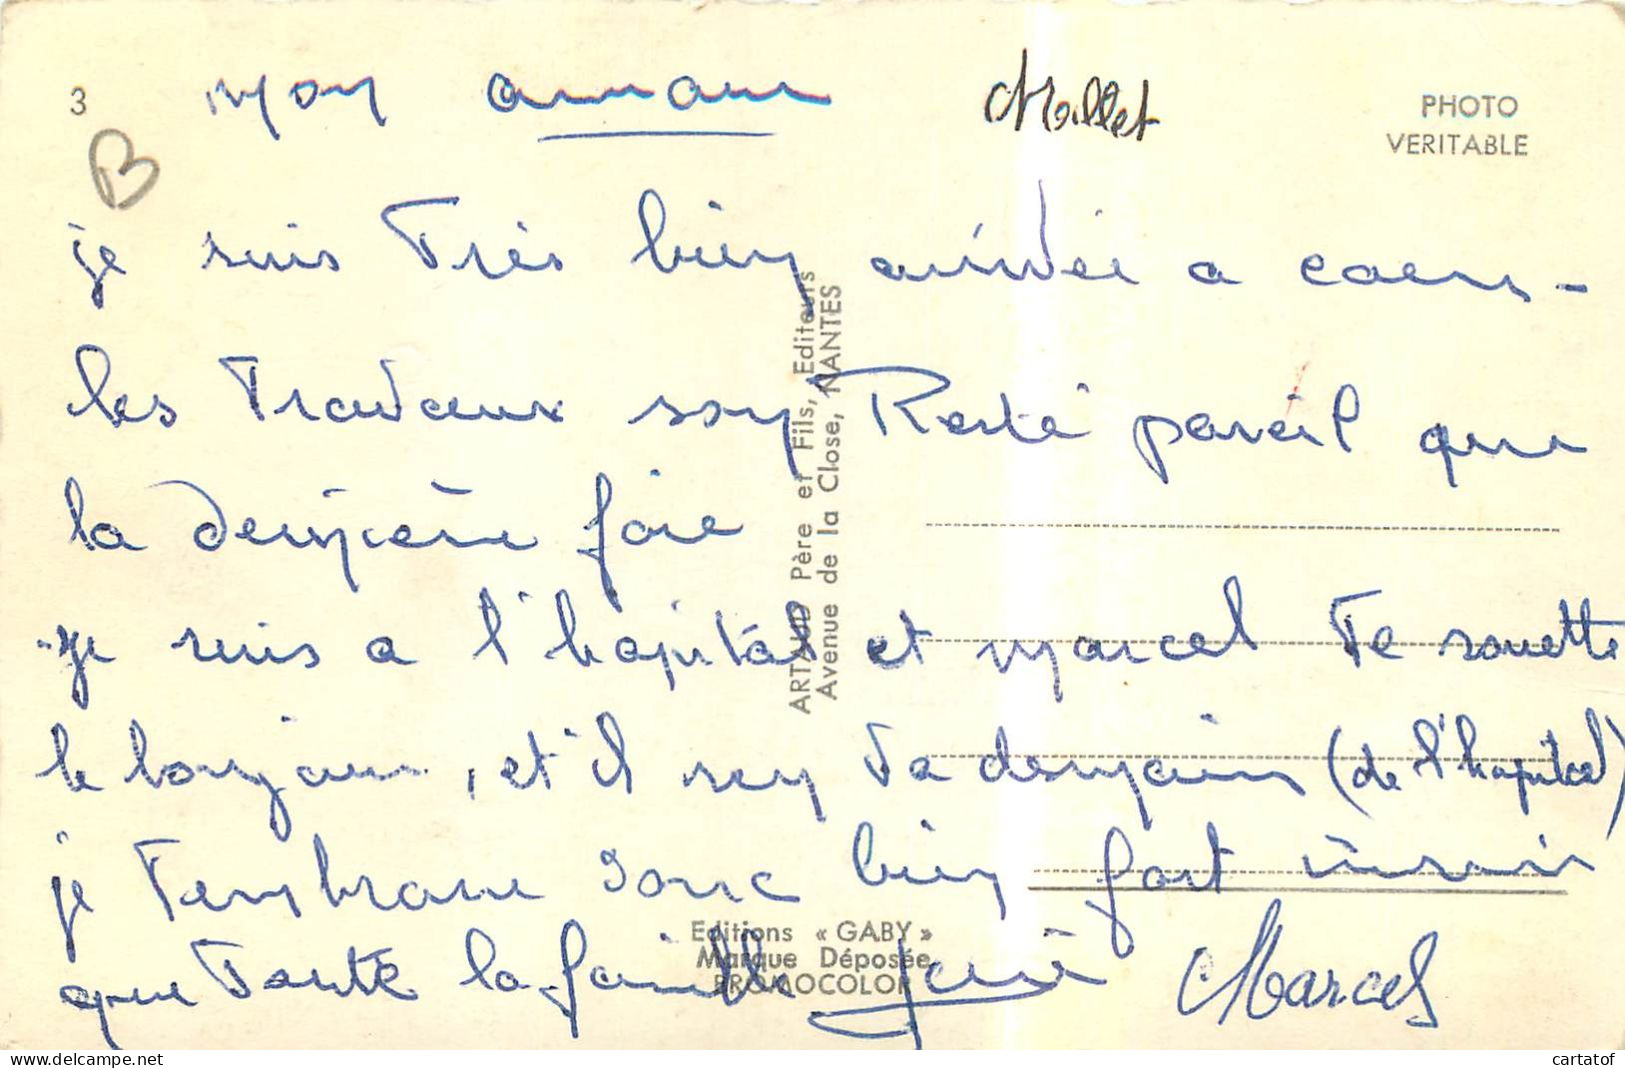 3
mon amour
Mallet
PHOTO
VERITABLE
B
je suis Très bien arivée a caen -
les Travaux son Resté pareil que
la dernière foie
je suis a l'hapital et Marcel Te souette
le bonjour, et il sen va demain (de l'hapital)
je Tembrasse donc bien fort insui
que Toute la famille
Marcel
ARTAUD Père et Fils, Editeurs
Avenue de la Close, NANTES
Editions « GABY »
Marque Déposée
PROMOCOLOR
cartatof